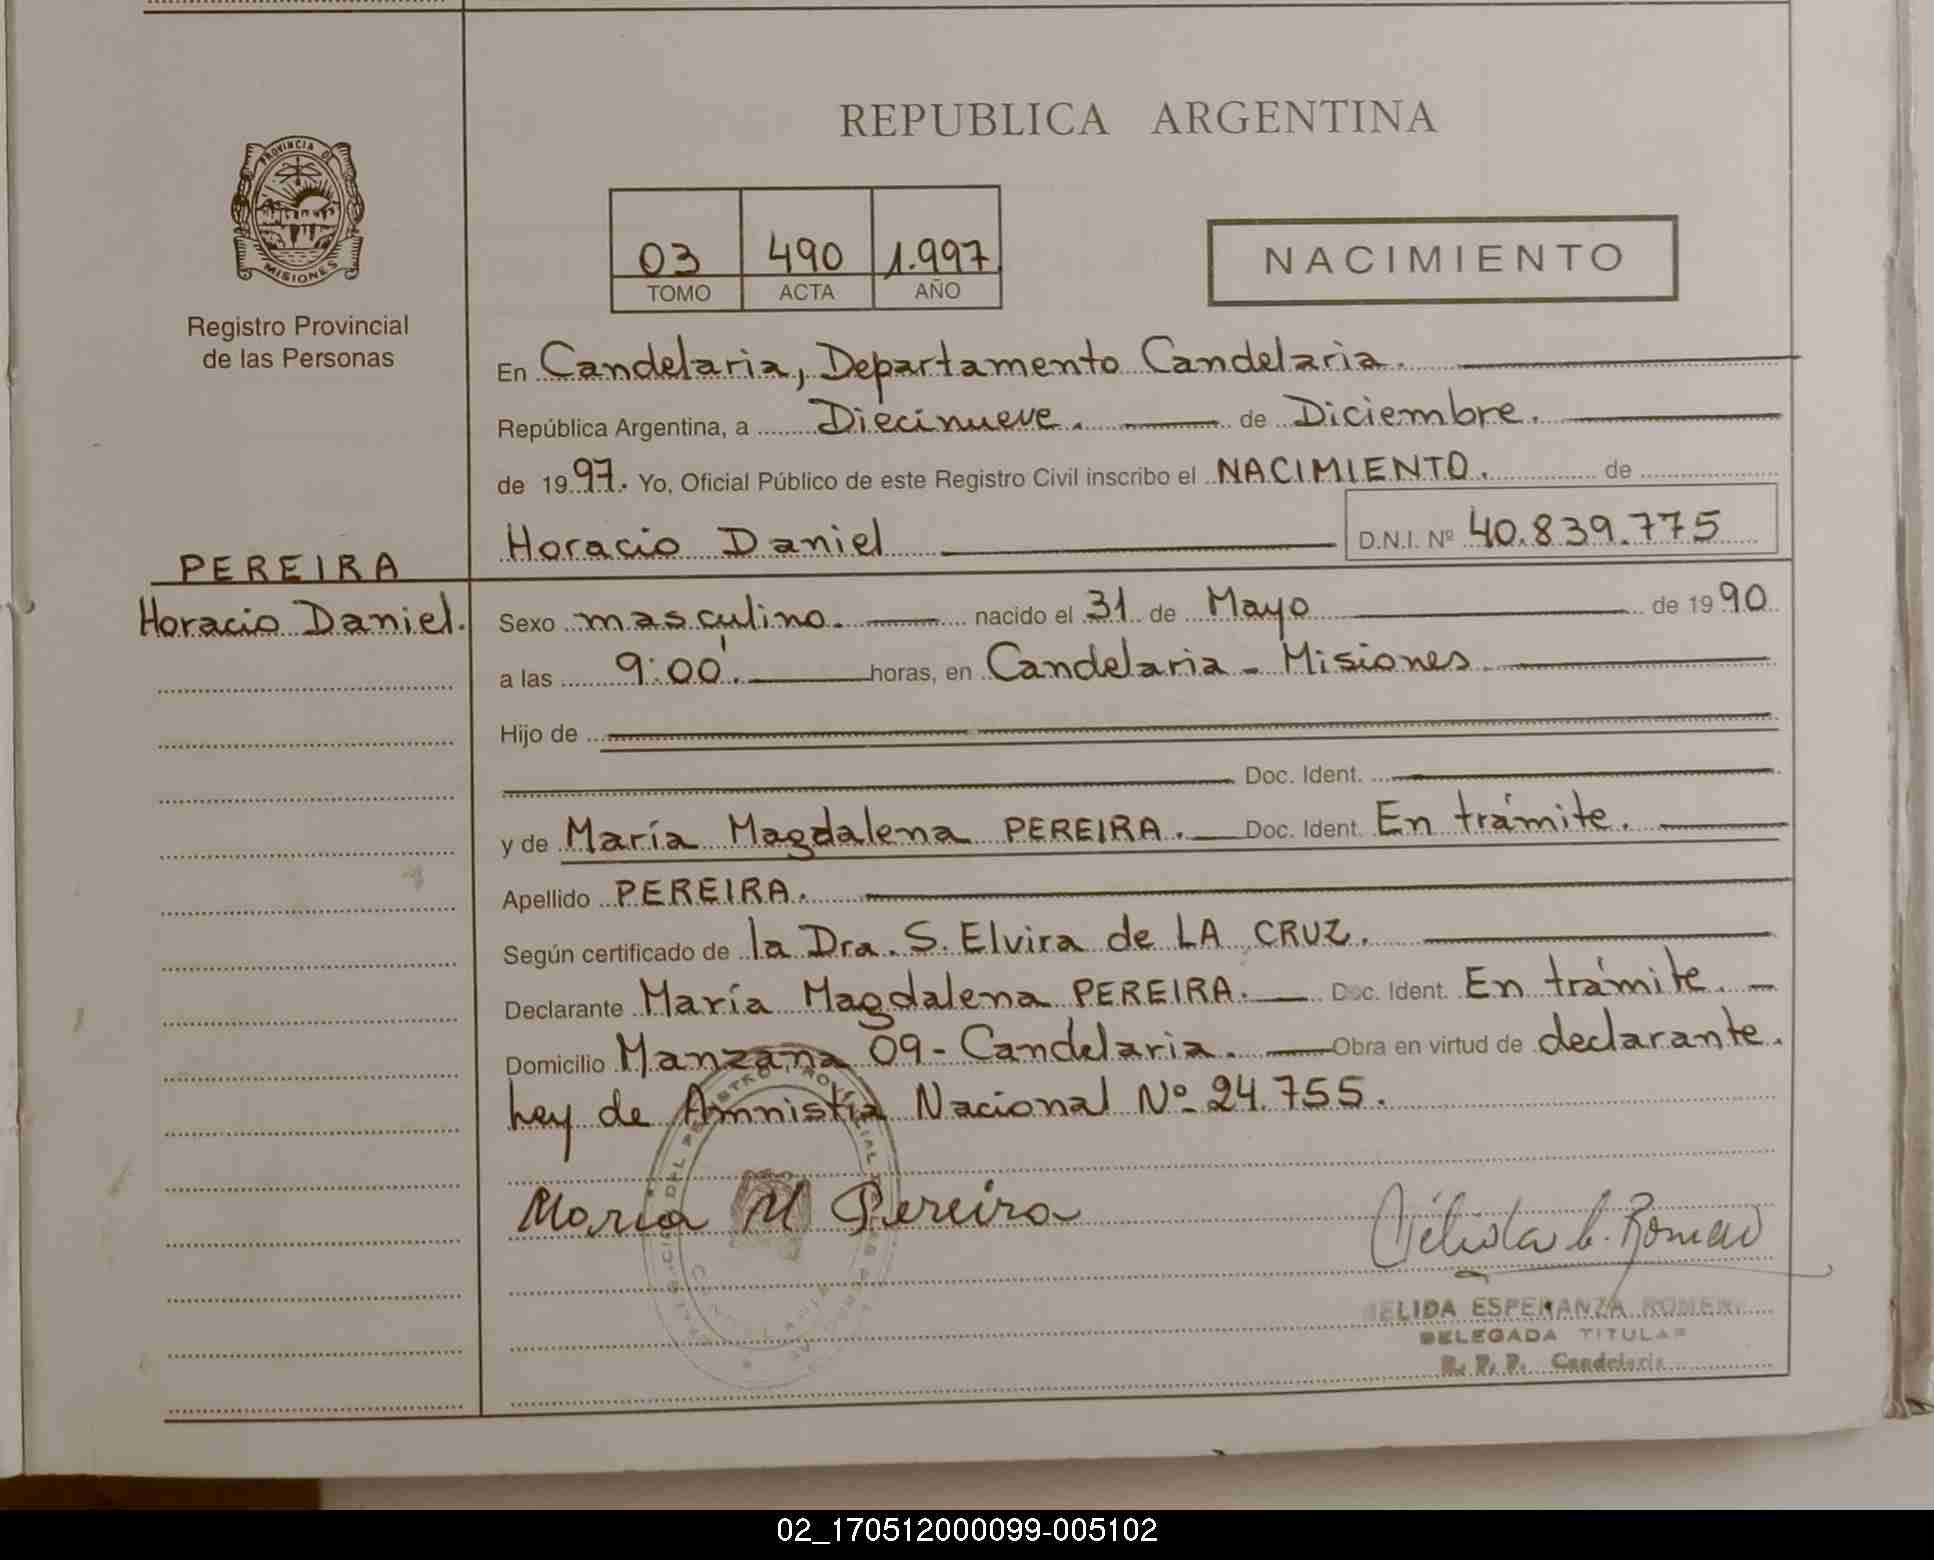 REPUBLICA ARGENTINA
PROVINCIA DE
MISIONES
Registro Provincial
de las Personas
03 490 1.997
TOMO ACTA AÑO
NACIMIENTO
En Candelaria, Departamento Candelaria.
República Argentina, a Diecinueve. de Diciembre.
de 1997. Yo, Oficial Público de este Registro Civil inscribo el NACIMIENTO. de
Horacio Daniel D.N.I. Nº 40.839.775
PEREIRA
Horacio Daniel.
Sexo masculino. nacido el 31 de Mayo de 1990
a las 9:00'. horas, en Candelaria - Misiones
Hijo de
Doc. Ident.
y de María Magdalena PEREIRA. Doc. Ident. En trámite.
Apellido PEREIRA.
Según certificado de la Dra. S. Elvira de LA CRUZ.
Declarante María Magdalena PEREIRA. Doc. Ident. En trámite.
Domicilio Manzana 09 - Candelaria. Obra en virtud de declarante.
Ley de Amnistía Nacional Nº 24.755.
Maria M Pereira
ELIDA ESPERANZA ROMER
DELEGADA TITULAR
R. P. P. Candelaria
02_170512000099-005102